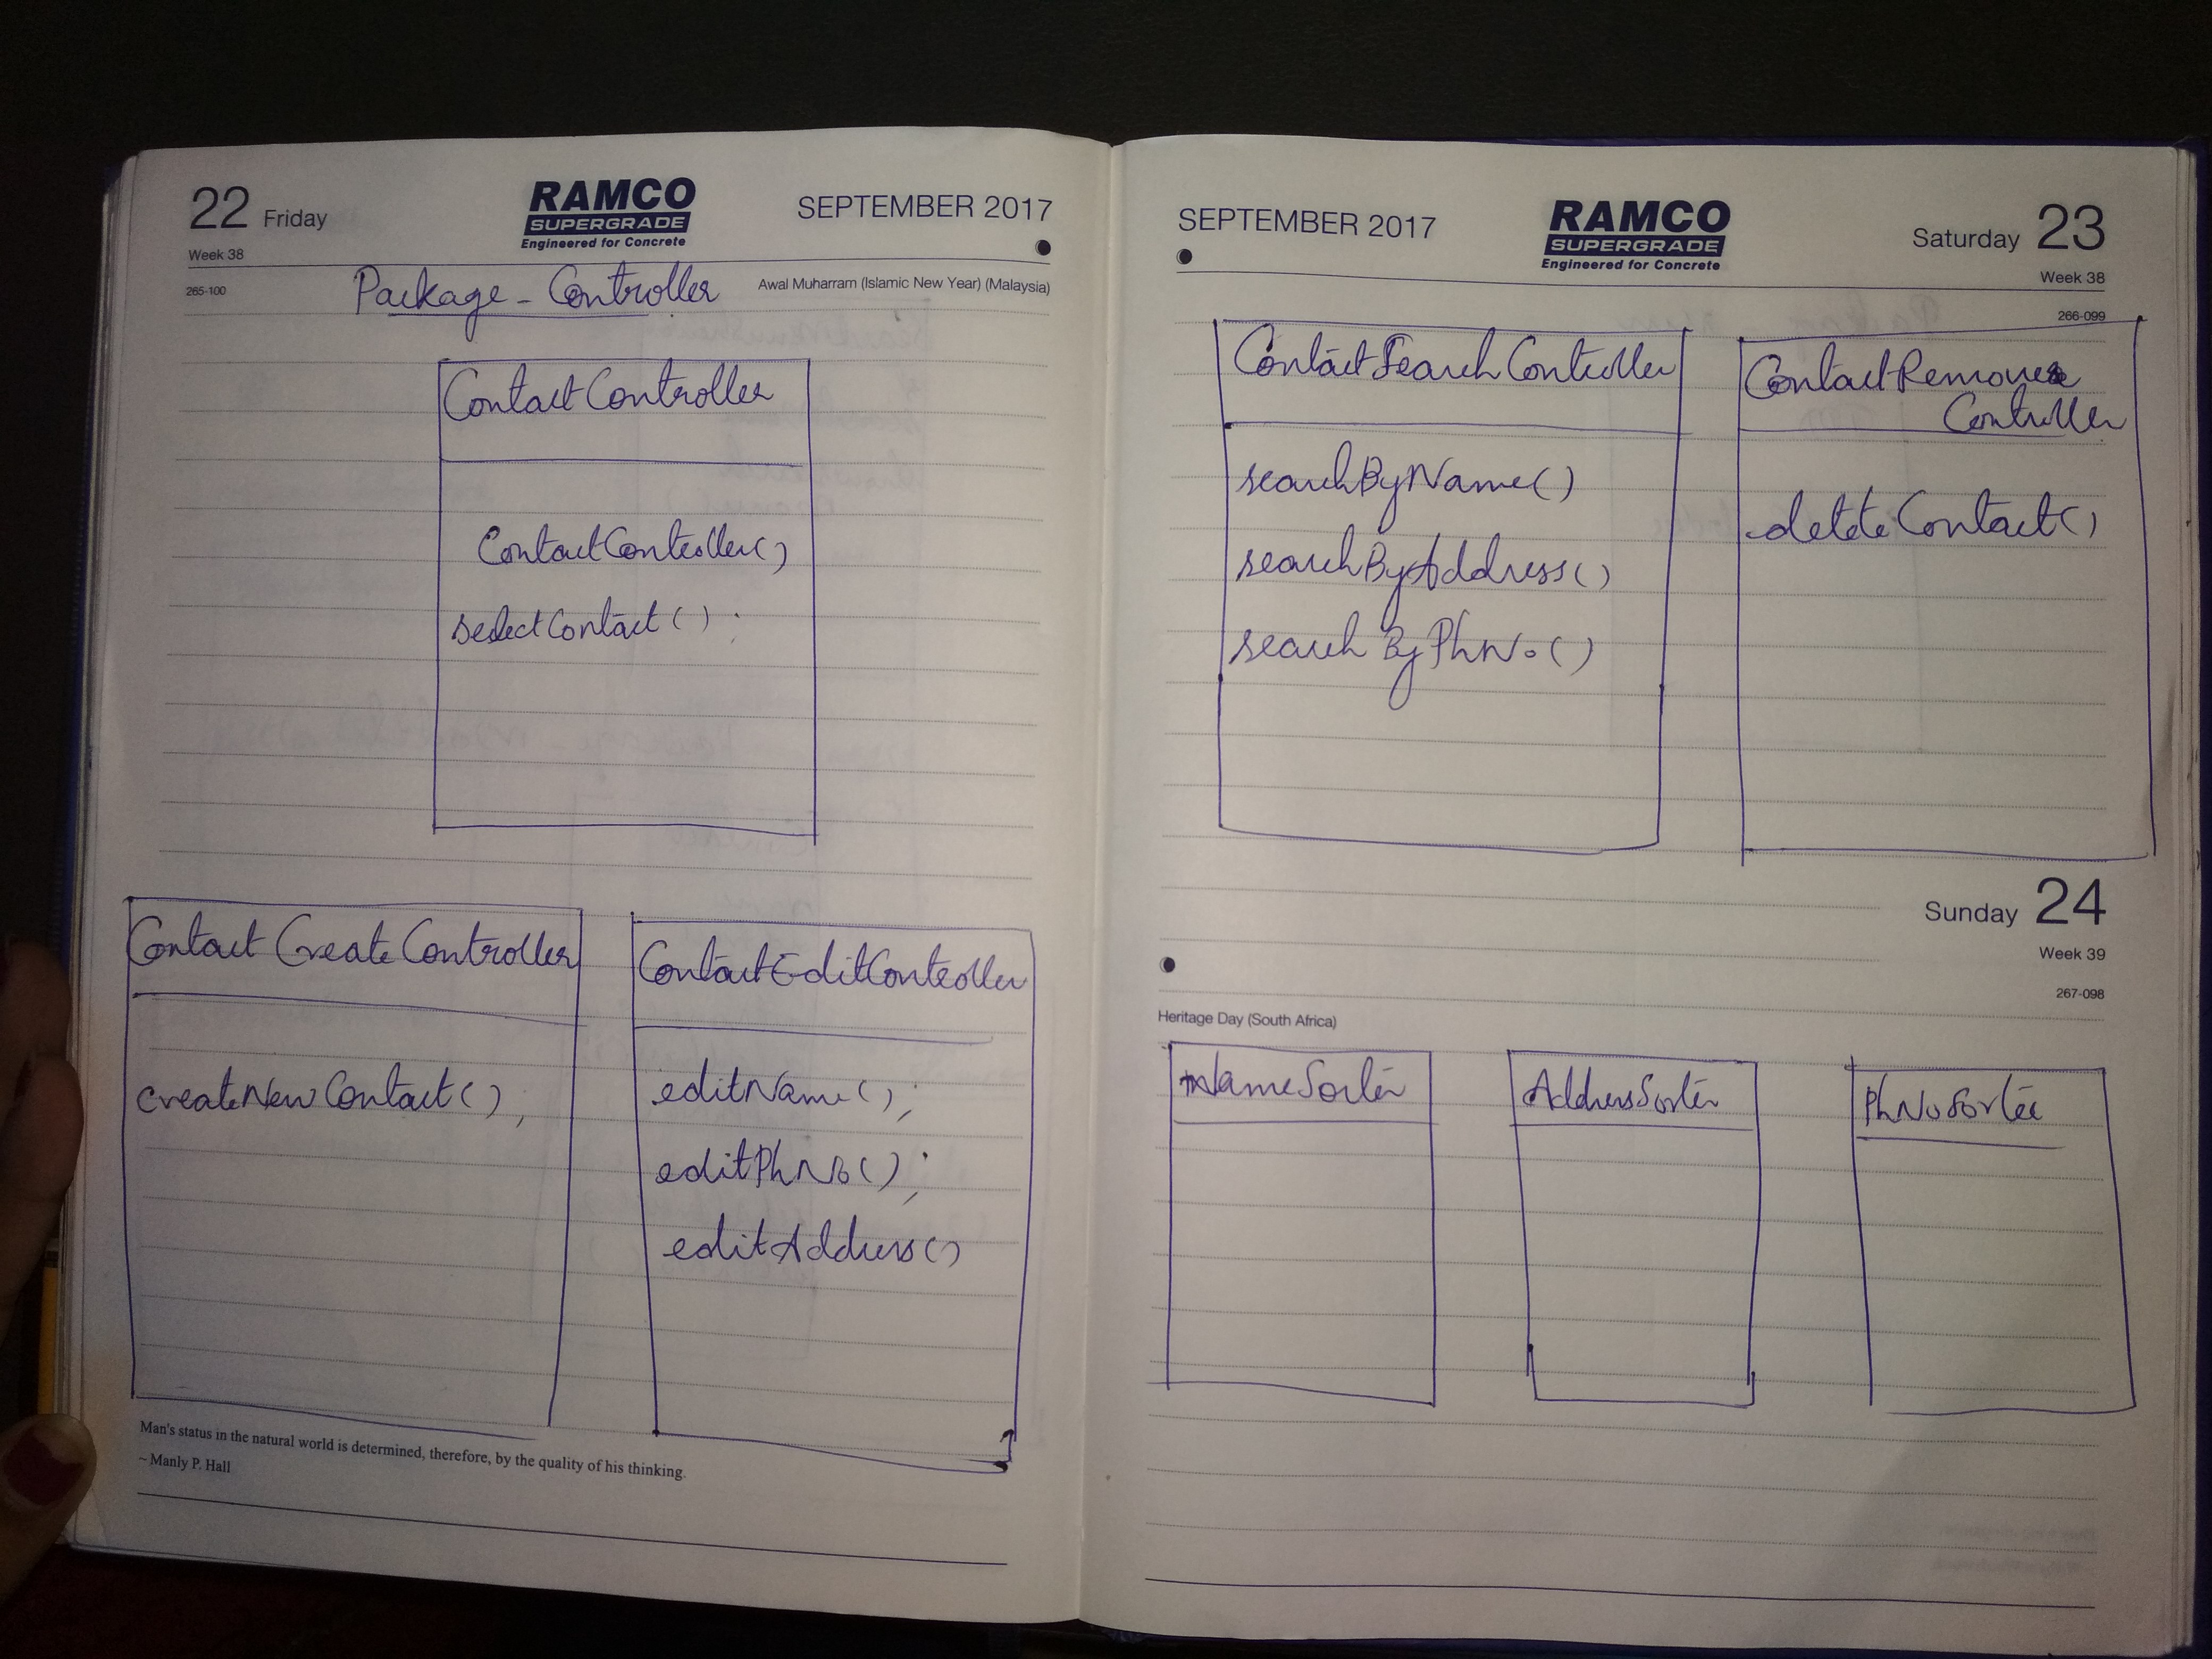 22 Friday
RAMCO
SUPERGRADE
Engineered for Concrete
SEPTEMBER 2017
Week 38
265-100
Awal Muharram (Islamic New Year) (Malaysia)
Package - Controller
ContactController
ContactController()
selectContact() ;
Contact Create Controller
createNewContact() ;
ContactEditController
editName() ;
editPhNo() ;
editAddress()
Man's status in the natural world is determined, therefore, by the quality of his thinking.
~ Manly P. Hall
SEPTEMBER 2017
RAMCO
SUPERGRADE
Engineered for Concrete
Saturday 23
Week 38
266-099
ContactSearchController
searchByName()
searchByAddress()
searchByPhNo()
ContactRemove
Controller
deleteContact()
Sunday 24
Week 39
267-098
Heritage Day (South Africa)
NameSorter
AddressSorter
PhNoSorter